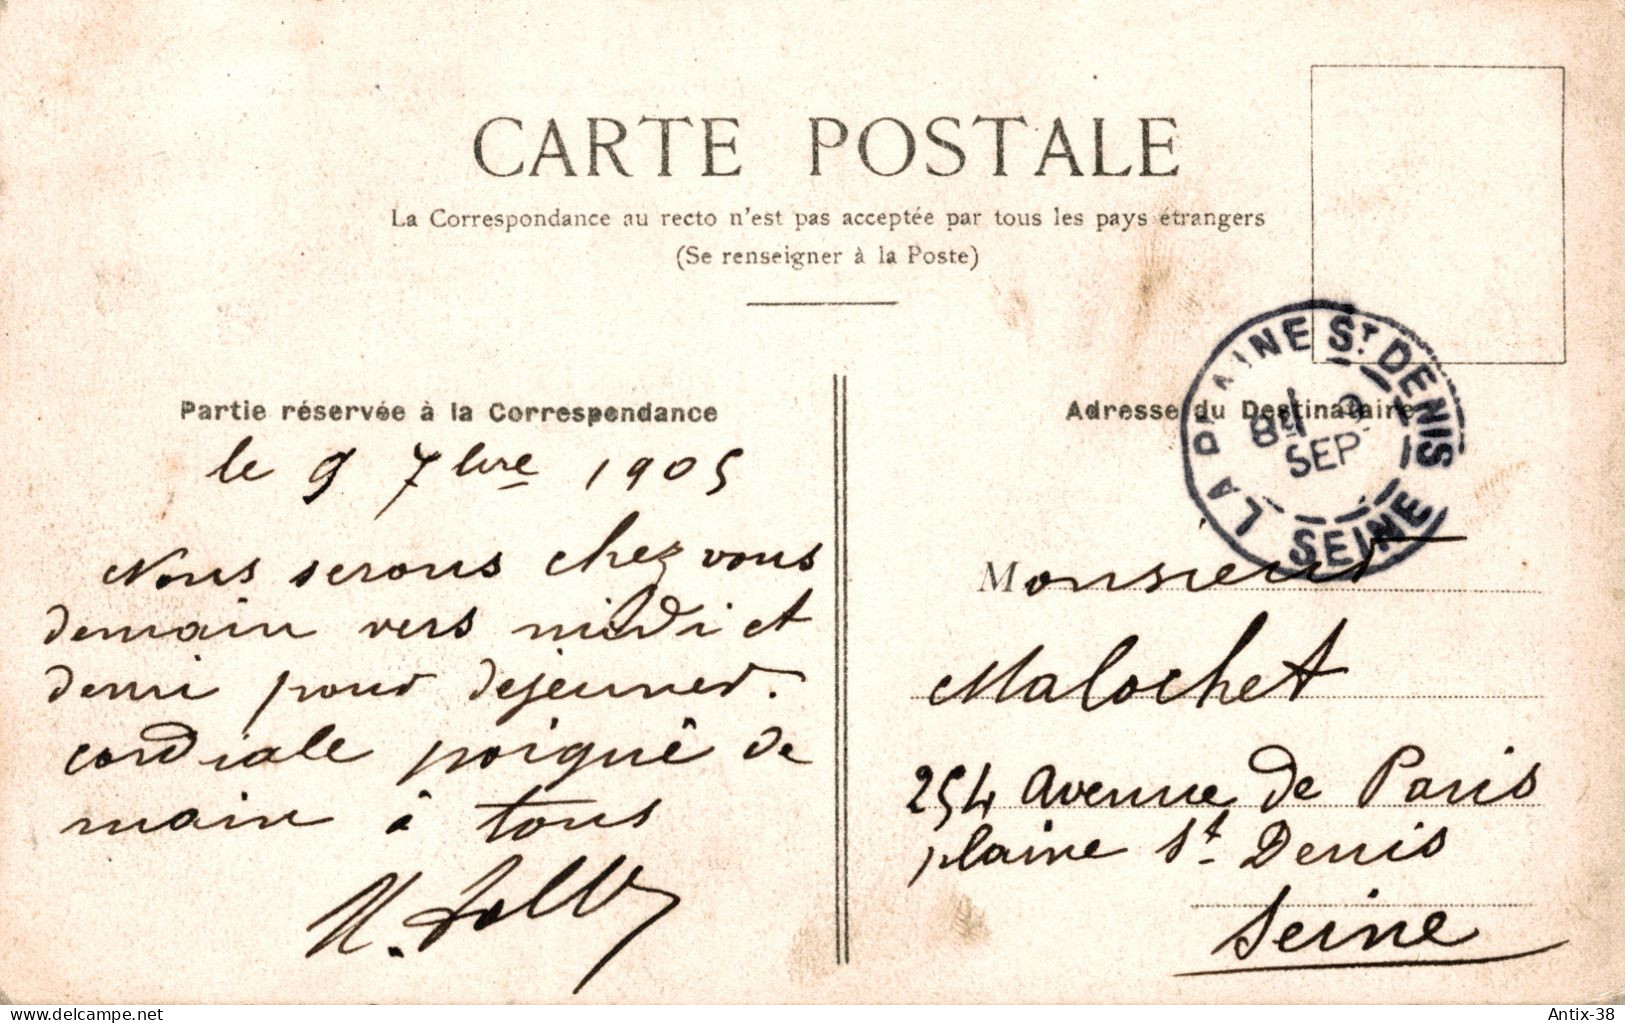 CARTE POSTALE
La Correspondance au recto n'est pas acceptée par tous les pays étrangers
(Se renseigner à la Poste)
Partie réservée à la Correspondance
le 9 7bre 1905
Nous serons chez vous
demain vers midi et
demi pour dejeuner.
cordiale poigné de
main à tous
Adresse du Destinataire
LA PLAINE ST DENIS
SEP
SEINE
Monsieur
Malochet
254 avenue de Paris
plaine St Denis
Seine
delcampe.net
Antix-38